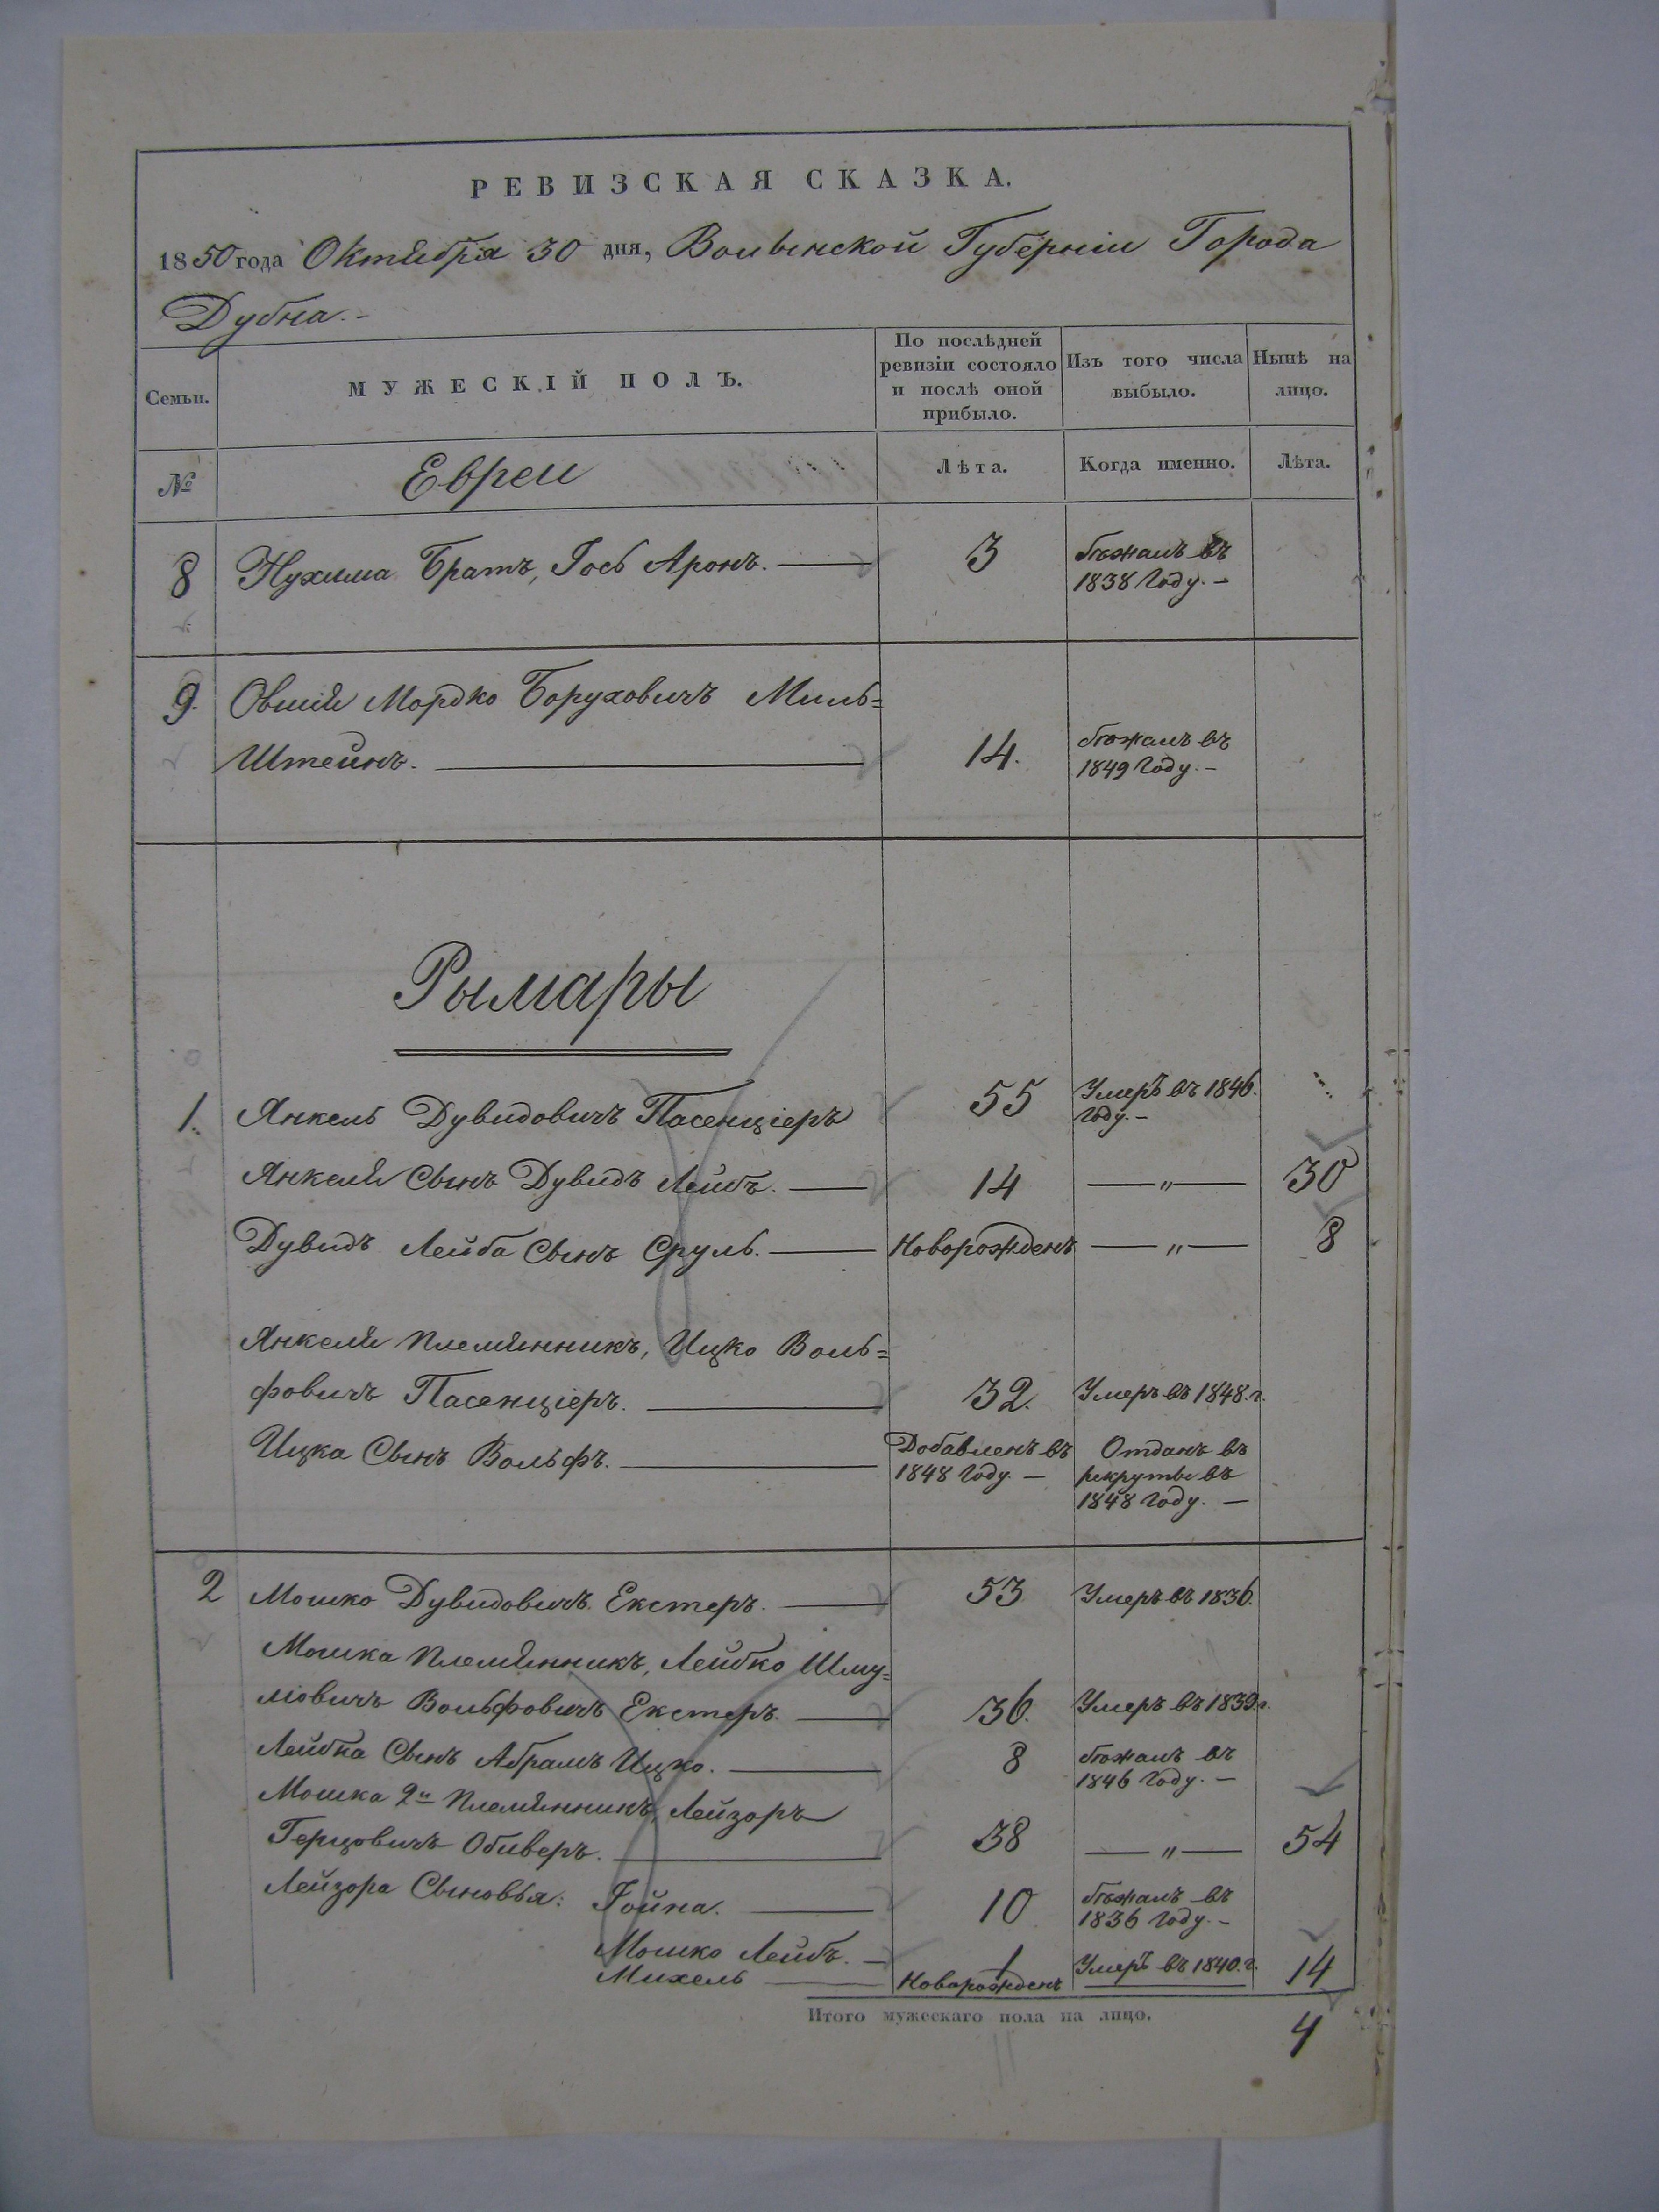 РЕВИЗСКАЯ СКАЗКА.
1850 года Октября 30 дня, Волынской Губерніи Города
Дубна.-
Семьи.
МУЖЕСКІЙ ПОЛЪ.
По послѣдней
ревизіи состояло
и послѣ оной
прибыло.
Изъ того числа
выбыло.
Нынѣ на
лицо.
№
Евреи
Лѣта.
Когда именно.
Лѣта.
8 Нухима Братъ, Іось Аронъ. — 3 бѣжалъ въ
1838 Году.-
9. Овшія Мордко Боруховичъ Миль=
Штейнъ. — 14. бѣжалъ въ
1849 Году.-
Рымары
1. Янкель Дувидовичъ Пасенціеръ 55 Умеръ въ 1846.
Году.-
Янкеля Сынъ Дувидъ Лейбъ. — 14 —„— 30
Дувидъ Лейба Сынъ Сруль. — Новорожденъ —„— 8
Янкеля Племянникъ, Ицко Воль=
фовичъ Пасенціеръ. — 32. Умеръ въ 1848.г.
Ицка Сынъ Вольфъ. — Добавленъ въ
1848 Году. —
Отданъ въ
рекруты въ
1848 Году. —
2 Мошко Дувидовичъ Екстеръ. — 53 Умеръ въ 1836.
Мошка Племянникъ, Лейбко Шму=
ліовичъ Вольфовичъ Екстеръ. — 36. Умеръ въ 1839г.
Лейбка Сынъ Абрамъ Ицко. — 8 бѣжалъ въ
1846 Году.-
Мошка 2й Племянникъ, Лейзоръ
Герцовичъ Обиверъ. — 38 —„— 54
Лейзора Сыновья: Іойна. — 10 бѣжалъ въ
1836 Году.-
Мошко Лейбъ. — 1 Умеръ въ 1840.г.
Михель — Новорожденъ — 14
Итого мужескаго пола на лицо. 4